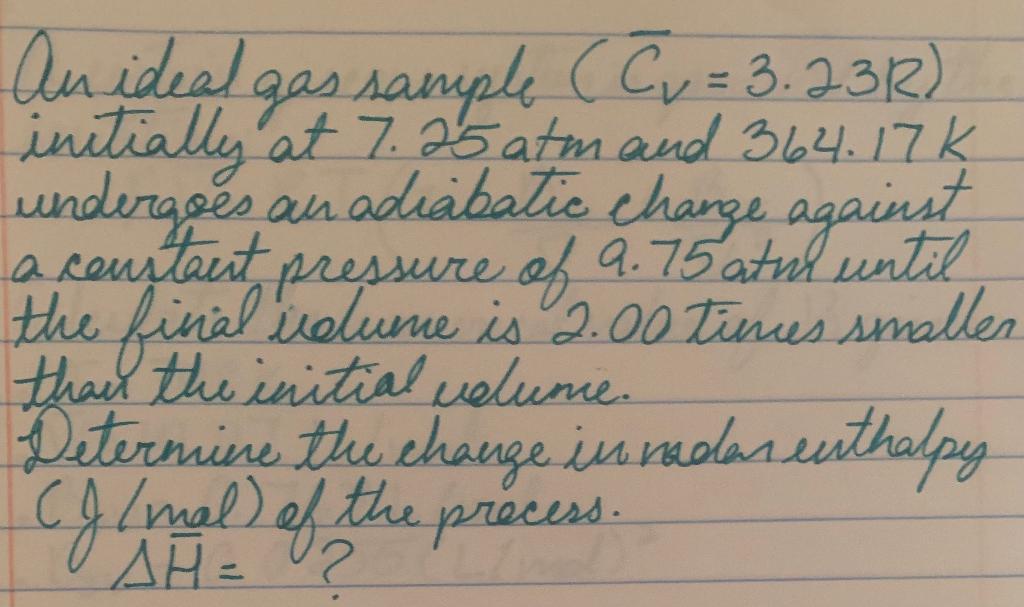 An ideal gas sample (C̅v = 3.23R)
initially at 7.25 atm and 364.17 K
undergoes an adiabatic change against
a constant pressure of 9.75 atm until
the final volume is 2.00 times smaller
than the initial volume.
Determine the change in molar enthalpy
(J/mol) of the process.
ΔH̅ = ?